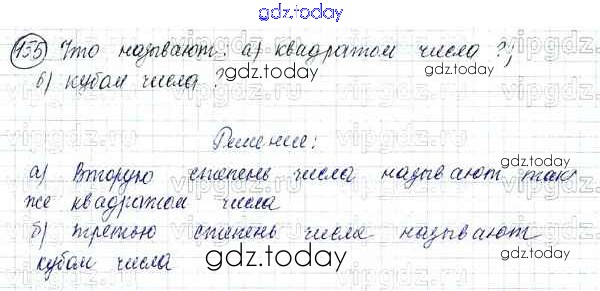 gdz.today
155 Что называют: а) квадратом числа?;
б) кубом числа?
gdz.today
gdz.today
Решение:
gdz.today
а) Вторую степень числа называют так
же квадратом числа
gdz.today
б) третью степень числа называют
кубом числа
gdz.today
gdz.today